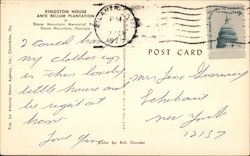 KINGSTON HOUSE
ANTE BELLUM PLANTATION
Stone Mountain Memorial Park
Stone Mountain, Georgia
POST CARD
I could hang
my clothes up
in this lovely
little house and
be right at
home
Love
Mrs
New York
12157
Color by Bob Glander
Pub. by Atlanta News Agency, Inc., Chamblee, Ga.